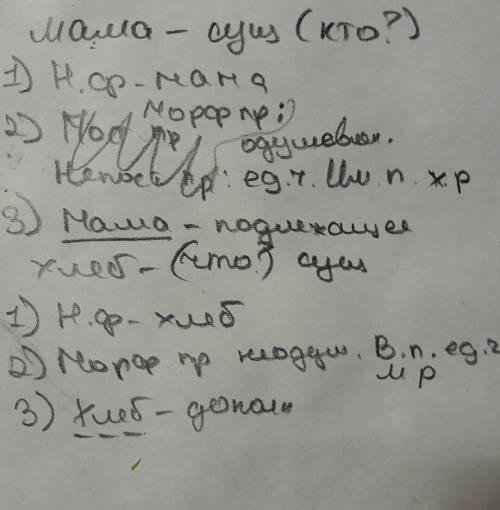 Мама – сущ (кто?)
1) Н.ф – мама
2) Морф пр:
одушевлен.
Непост пр: ед.ч. Им. п. ж.р
3) Мама – подлежащее
хлеб – (что?) сущ
1) Н.ф – хлеб
2) Морф пр неодуш. В.п. ед.ч
м р
3) Хлеб – дополн